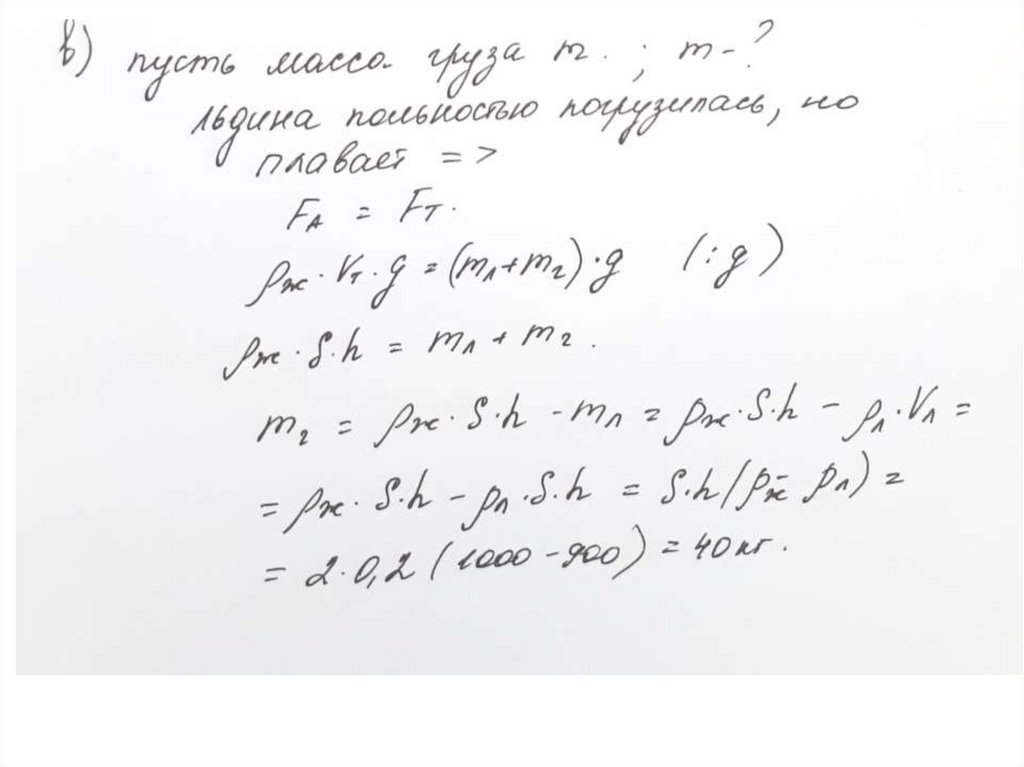 в) пусть масса груза m. ; m - ?
льдина польностью погрузилась, но
плавает =>
FА = FТ.
ρж · Vт · g = (mл + mг) · g (: g)
ρж · S · h = mл + mг.
mг = ρж · S · h - mл = ρж · S · h - ρл · Vл =
= ρж · S · h - ρл · S · h = S · h (ρж - ρл) =
= 2 · 0,2 (1000 - 900) = 40 кг.